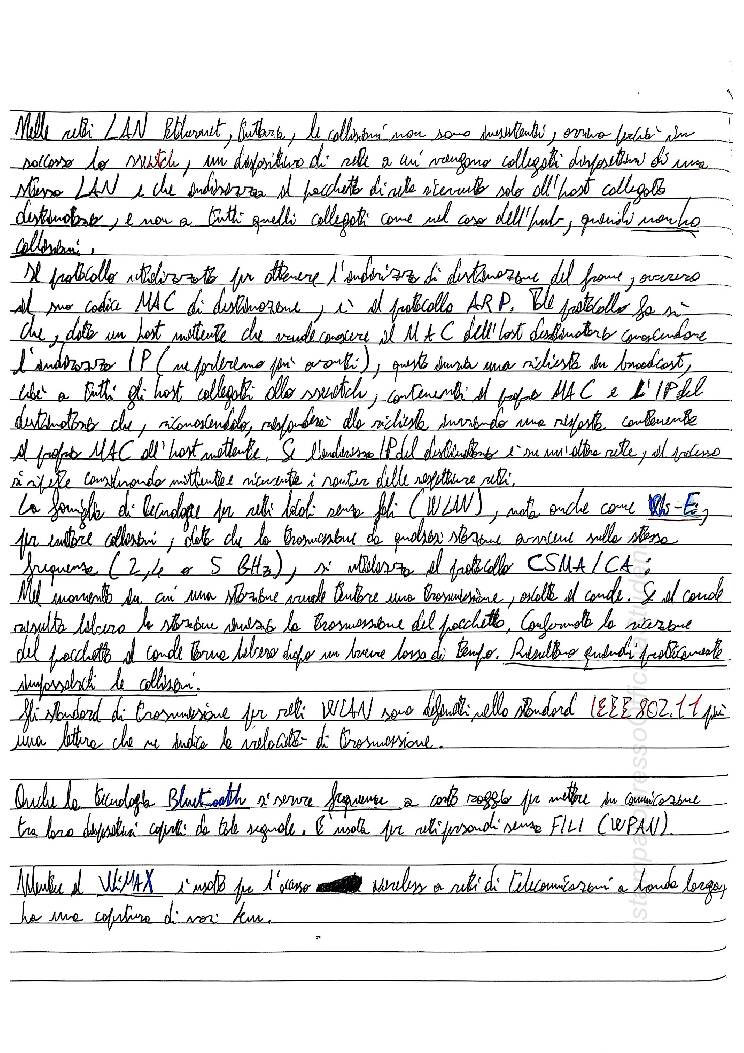 Nelle reti LAN Ethernet, tuttavia, le collisioni non sono inesistenti, ovvero perché in
soccorso lo switch, un dispositivo di rete a cui vengono collegati dispositivi di una
stessa LAN e che indirizza il pacchetto di rete ricevuto solo all'host collegato
destinatario, e non a tutti quelli collegati come nel caso dell'hub, quindi non ho
collisioni.
Il protocollo utilizzato per ottenere l'indirizzo di destinazione del frame, ovvero
il suo codice MAC di destinazione, è il protocollo ARP. Tale protocollo fa sì
che, dato un host mittente che vuole conoscere il MAC dell'host destinatario conoscendone
l'indirizzo IP (ne parleremo più avanti), questo invia una richiesta in broadcast,
cioè a tutti gli host collegati allo switch, contenente il proprio MAC e L'IP del
destinatario che, riconoscendolo, risponderà alla richiesta inviando una risposta contenente
il proprio MAC all'host mittente. Se l'indirizzo IP del destinatario è su un'altra rete, il processo
si ripete considerando mittente e ricevente i router delle rispettive reti.
La famiglia di tecnologie per reti locali senza fili (WLAN), nota anche come Wi-Fi,
per evitare collisioni, dato che la trasmissione da qualsiasi stazione avviene sulla stessa
frequenza (2,4 o 5 GHz), si utilizza il protocollo CSMA/CA:
Nel momento in cui una stazione vuole tentare una trasmissione, ascolta il canale. Se il canale
risulta libero la stazione inizia la trasmissione del pacchetto. Confermata la ricezione
del pacchetto il canale torna libero dopo un breve lasso di tempo. Risultano quindi praticamente
impossibili le collisioni.
Gli standard di trasmissione per reti WLAN sono definiti nello standard IEEE 802.11 più
una lettera che ne indica la velocità di trasmissione.
Anche la tecnologia Bluetooth si serve frequenze a corto raggio per mettere in comunicazione
tra loro dispositivi coperti da tale segnale. È usata per reti personali senza FILI (WPAN)
Mentre il WiMAX è usato per l'accesso wireless a reti di telecomunicazioni a banda larga,
ha una copertura di vari km.